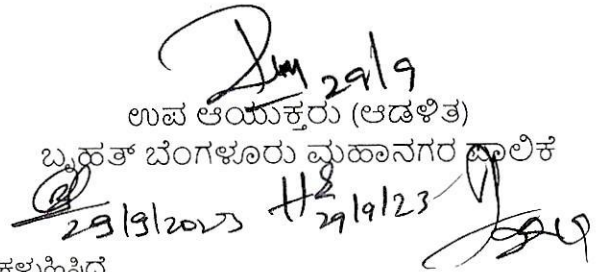 29/9
ಉಪ ಆಯುಕ್ತರು (ಆಡಳಿತ)
ಬೃಹತ್ ಬೆಂಗಳೂರು ಮಹಾನಗರ ಪಾಲಿಕೆ
29/9/2023 29/9/23
ಕಳುಹಿಸಿದೆ